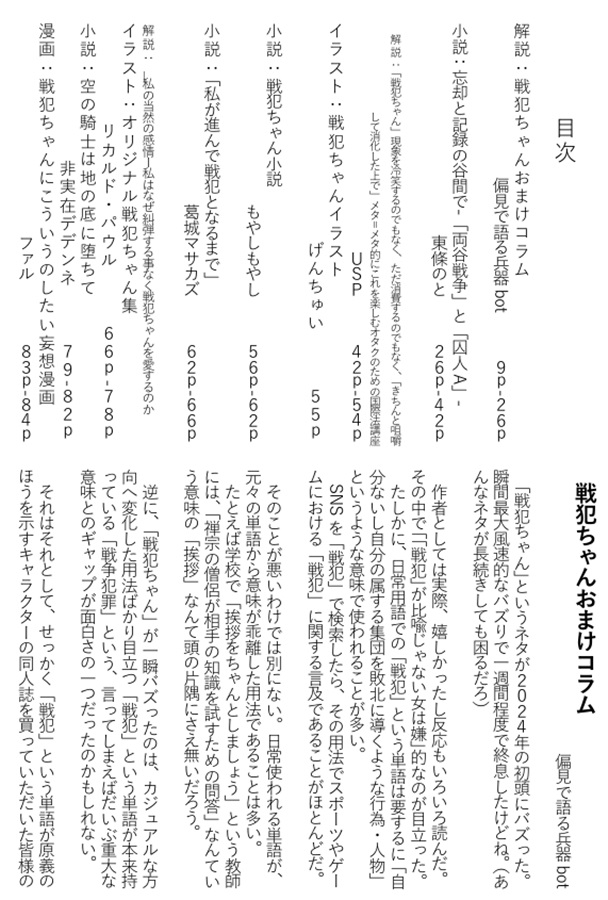 目次
解説：戦犯ちゃんおまけコラム
偏見で語る兵器bot　9p-26p
小説：忘却と記録の谷間で-「両谷戦争」と「囚人A」-
東條のと　26p-42p
解説：「戦犯ちゃん」現象を冷笑するのでもなく、ただ消費するのでもなく、「きちんと咀嚼
して消化した上で」メタ=メタ的にこれを楽しむオタクのための国際法講座
USP　42p-54p
イラスト：戦犯ちゃんイラスト
げんちゅい　55p
小説：戦犯ちゃん小説
もやしもやし　56p-62p
小説：「私が進んで戦犯となるまで」
葛城マサカズ　62p-66p
解説：_私の当然の感情―私はなぜ糾弾する事なく戦犯ちゃんを愛するのか
イラスト：オリジナル戦犯ちゃん集
リカルド・パウル　66p-78p
小説：空の騎士は地の底に堕ちて
非実在デデンネ　79-82p
漫画：戦犯ちゃんにこういうのしたい妄想漫画
ファル　83p-84p
戦犯ちゃんおまけコラム
偏見で語る兵器bot
「戦犯ちゃん」というネタが2024年の初頭にバズった。
瞬間最大風速的なバズりで一週間程度で終息したけどね。（あ
んなネタが長続きしても困るだろ）
作者としては実際、嬉しかったし反応もいろいろ読んだ。
その中で「「戦犯」が比喩じゃない女は嫌」的なのが目立った。
たしかに、日常用語での「戦犯」という単語は要するに「自
分ないし自分の属する集団を敗北に導くような行為・人物」
というような意味で使われることが多い。
SNSを「戦犯」で検索したら、その用法でスポーツやゲー
ムにおける「戦犯」に関する言及であることがほとんどだ。
そのことが悪いわけでは別にない。日常使われる単語が、
元々の単語から意味が乖離した用法であることは多い。
たとえば学校で「挨拶をちゃんとしましょう」という教師
には、「禅宗の僧侶が相手の知識を試すための問答」なんてい
う意味の「挨拶」なんて頭の片隅にさえ無いだろう。
逆に、「戦犯ちゃん」が一瞬バズったのは、カジュアルな方
向へ変化した用法ばかり目立つ「戦犯」という単語が本来持
っている「戦争犯罪」という、言ってしまえばだいぶ重大な
意味とのギャップが面白さの一つだったのかもしれない。
それはそれとして、せっかく「戦犯」という単語が原義の
ほうを示すキャラクターの同人誌を買っていただいた皆様の